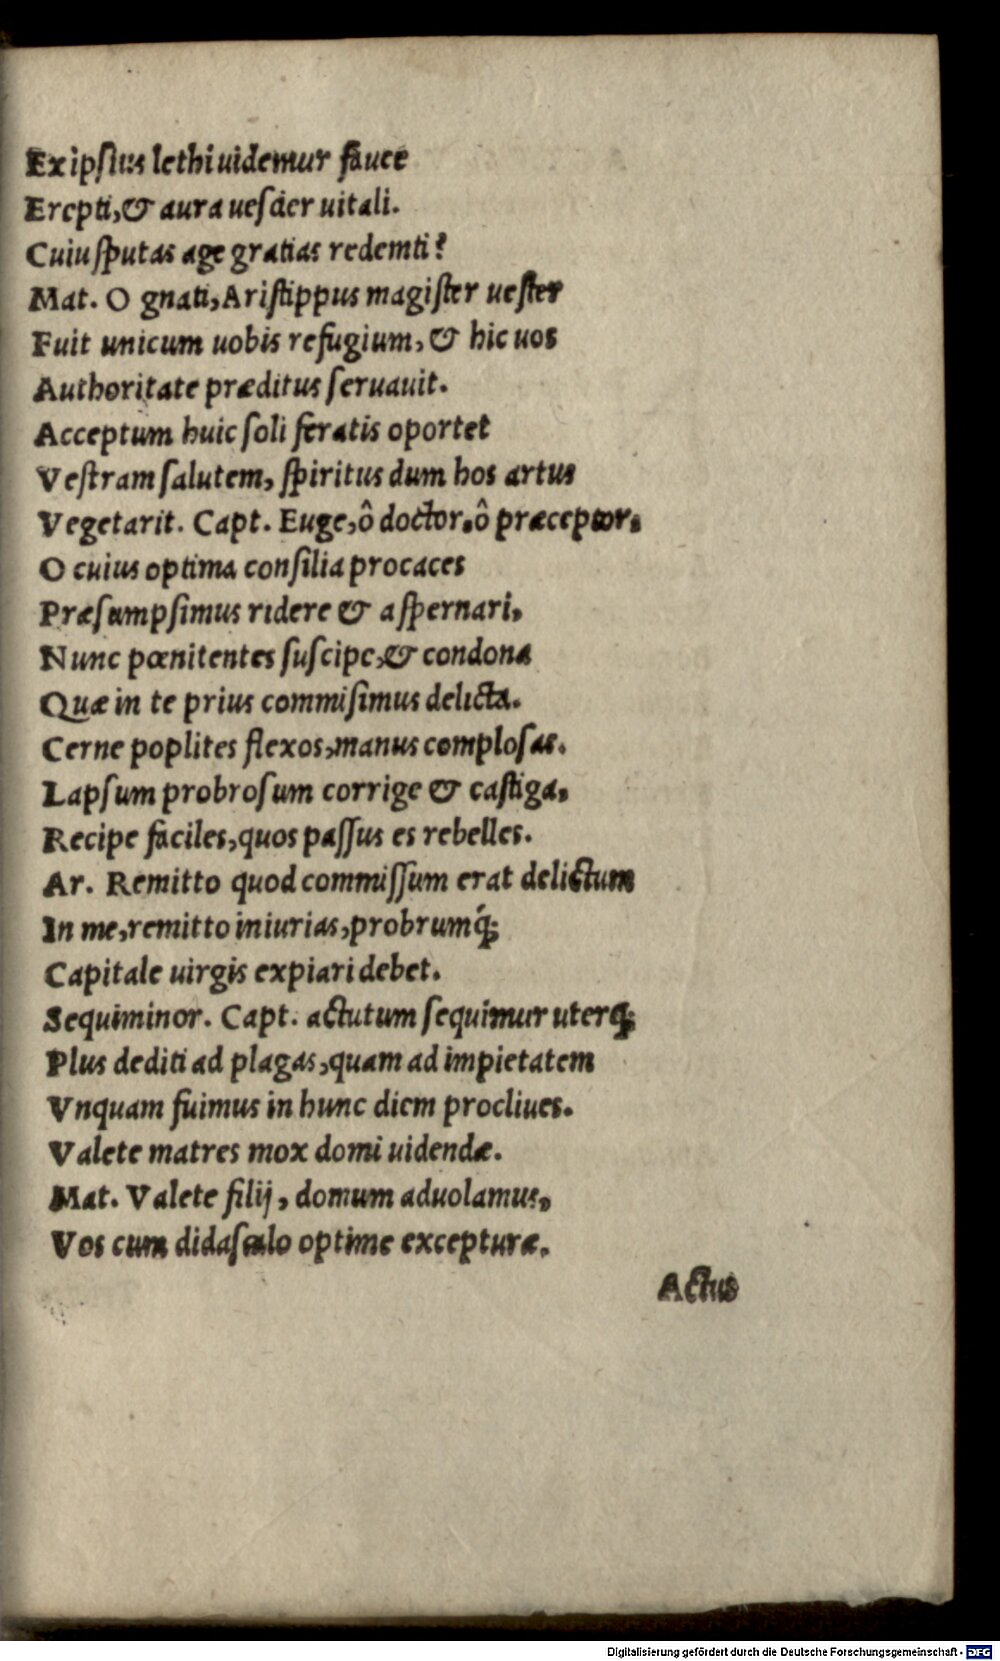 Ex ipsius lethi uidemur fauce
Erepti, & aura uescier uitali.
Cuius putas age gratias redemti?
Mat. O gnati, Aristippus magister uester
Fuit unicum uobis refugium, & hic uos
Authoritate præditus seruauit.
Acceptum huic soli feratis oportet
Vestram salutem, spiritus dum hos artus
Vegetarit. Capt. Euge, ô doctor, ô præceptor,
O cuius optima consilia procaces
Præsumpsimus ridere & aspernari,
Nunc pœnitentes suscipe, & condona
Quæ in te prius commisimus delicta.
Cerne poplites flexos, manus complosas.
Lapsum probrosum corrige & castiga,
Recipe faciles, quos passus es rebelles.
Ar. Remitto quod commissum erat delictum
In me, remitto iniurias, probrumq́;
Capitale uirgis expiari debet.
Sequiminor. Capt. actutum sequimur uterq;
Plus dediti ad plagas, quam ad impietatem
Vnquam fuimus in hunc diem procliues.
Valete matres mox domi uidendæ.
Mat. Valete filij, domum aduolamus,
Vos cum didascalo optime excepturæ.
Actus
Digitalisierung gefördert durch die Deutsche Forschungsgemeinschaft - DFG